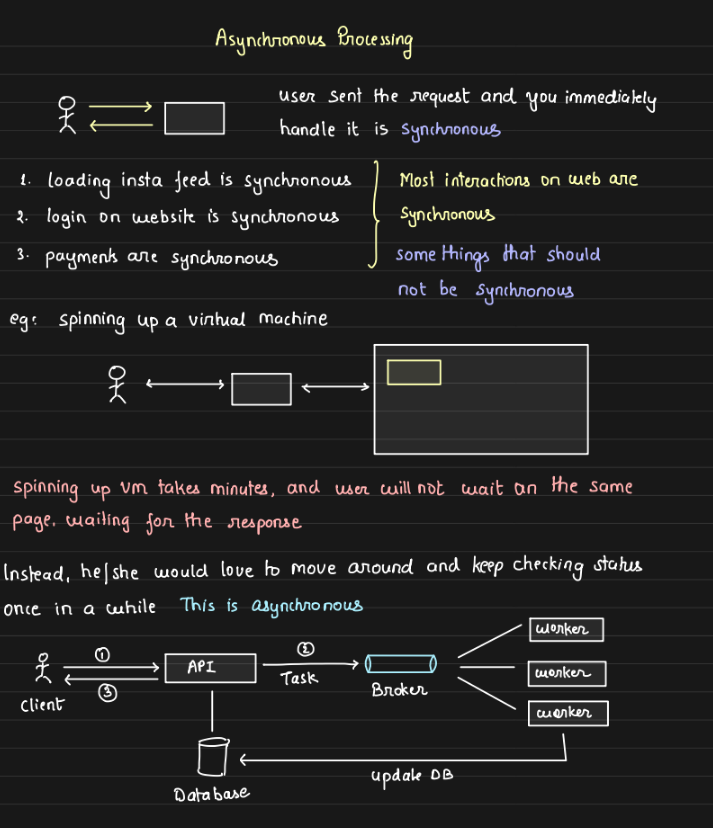 Asynchronous Processing
user sent the request and you immediately
handle it is synchronous
1. loading insta feed is synchronous
2. login on website is synchronous
3. payments are synchronous
Most interactions on web are
synchronous
some things that should
not be synchronous
eg: spinning up a virtual machine
spinning up vm takes minutes, and user will not wait on the same
page, waiting for the response
Instead, he/she would love to move around and keep checking status
once in a while This is asynchronous
Client
1
3
API
2
Task
Broker
worker
worker
worker
update DB
Database